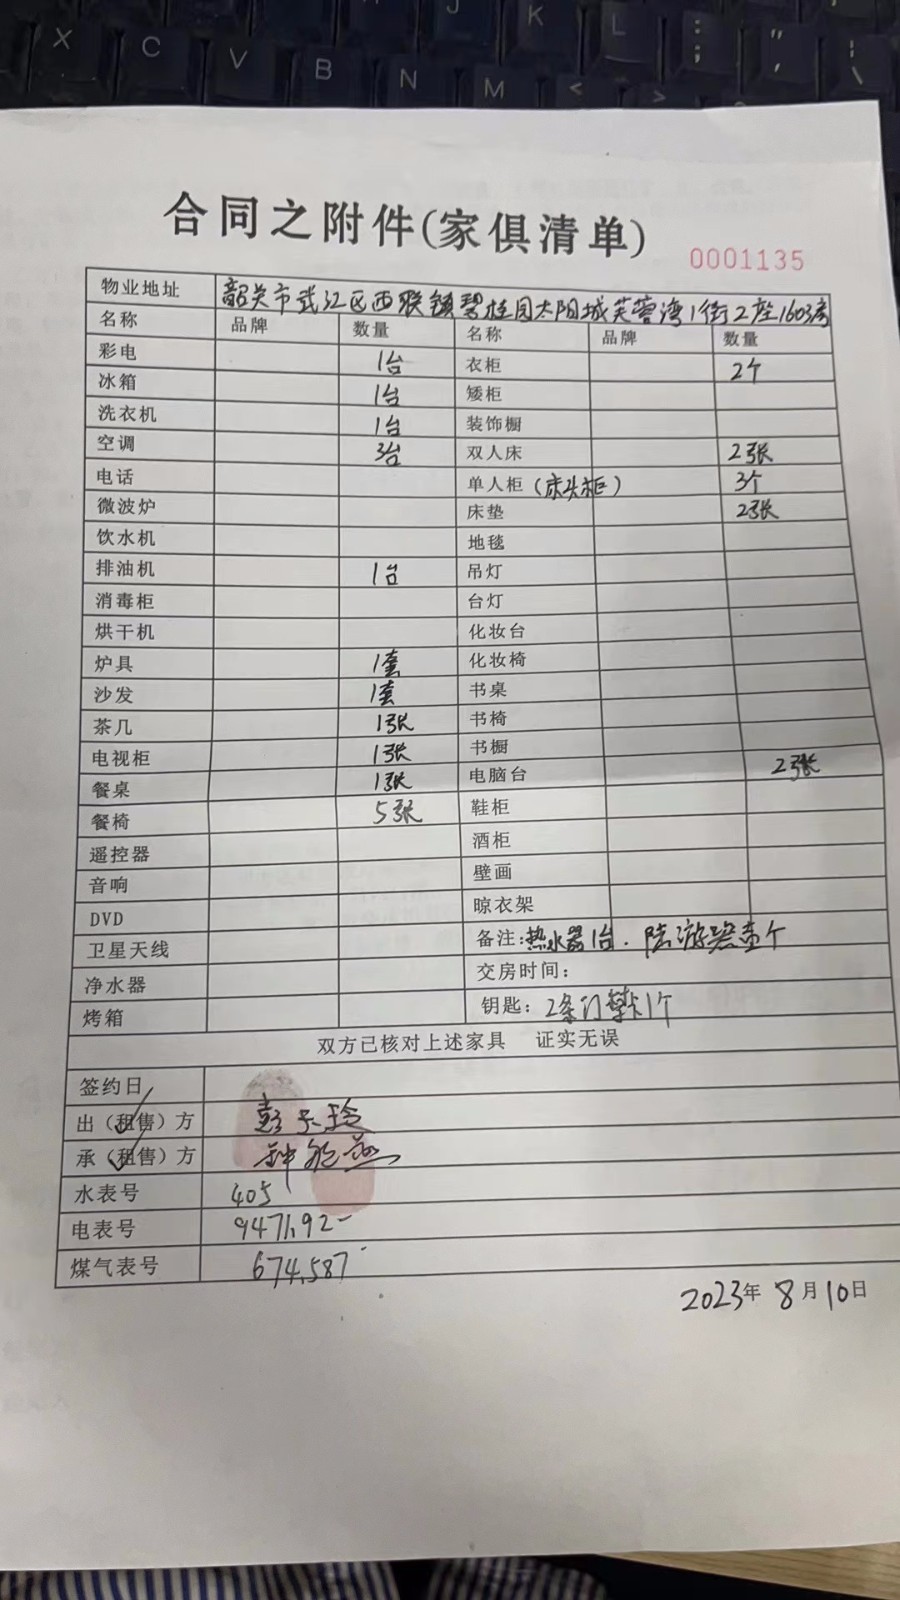 合同之附件(家俱清单)
0001135
物业地址 韶关市武江区西联镇碧桂园太阳城芙蓉湾1街2座1603房
名称 品牌 数量 名称 品牌 数量
彩电 1台 衣柜 2个
冰箱 1台 矮柜
洗衣机 1台 装饰橱
空调 3台 双人床 2张
电话 单人柜(床头柜) 3个
微波炉 床垫 2张
饮水机 地毯
排油机 1台 吊灯
消毒柜 台灯
烘干机 化妆台
炉具 1套 化妆椅
沙发 1套 书桌
茶几 1张 书椅
电视柜 1张 书橱
餐桌 1张 电脑台 2张
餐椅 5张 鞋柜
遥控器 酒柜
音响 壁画
DVD 晾衣架
卫星天线 备注:热水器1台.
净水器 交房时间:
烤箱 钥匙: 2条门禁卡1个
双方已核对上述家具 证实无误
签约日
出(租售)方
承(租售)方
水表号 405
电表号 9471.92-
煤气表号 674.587
2023年8月10日